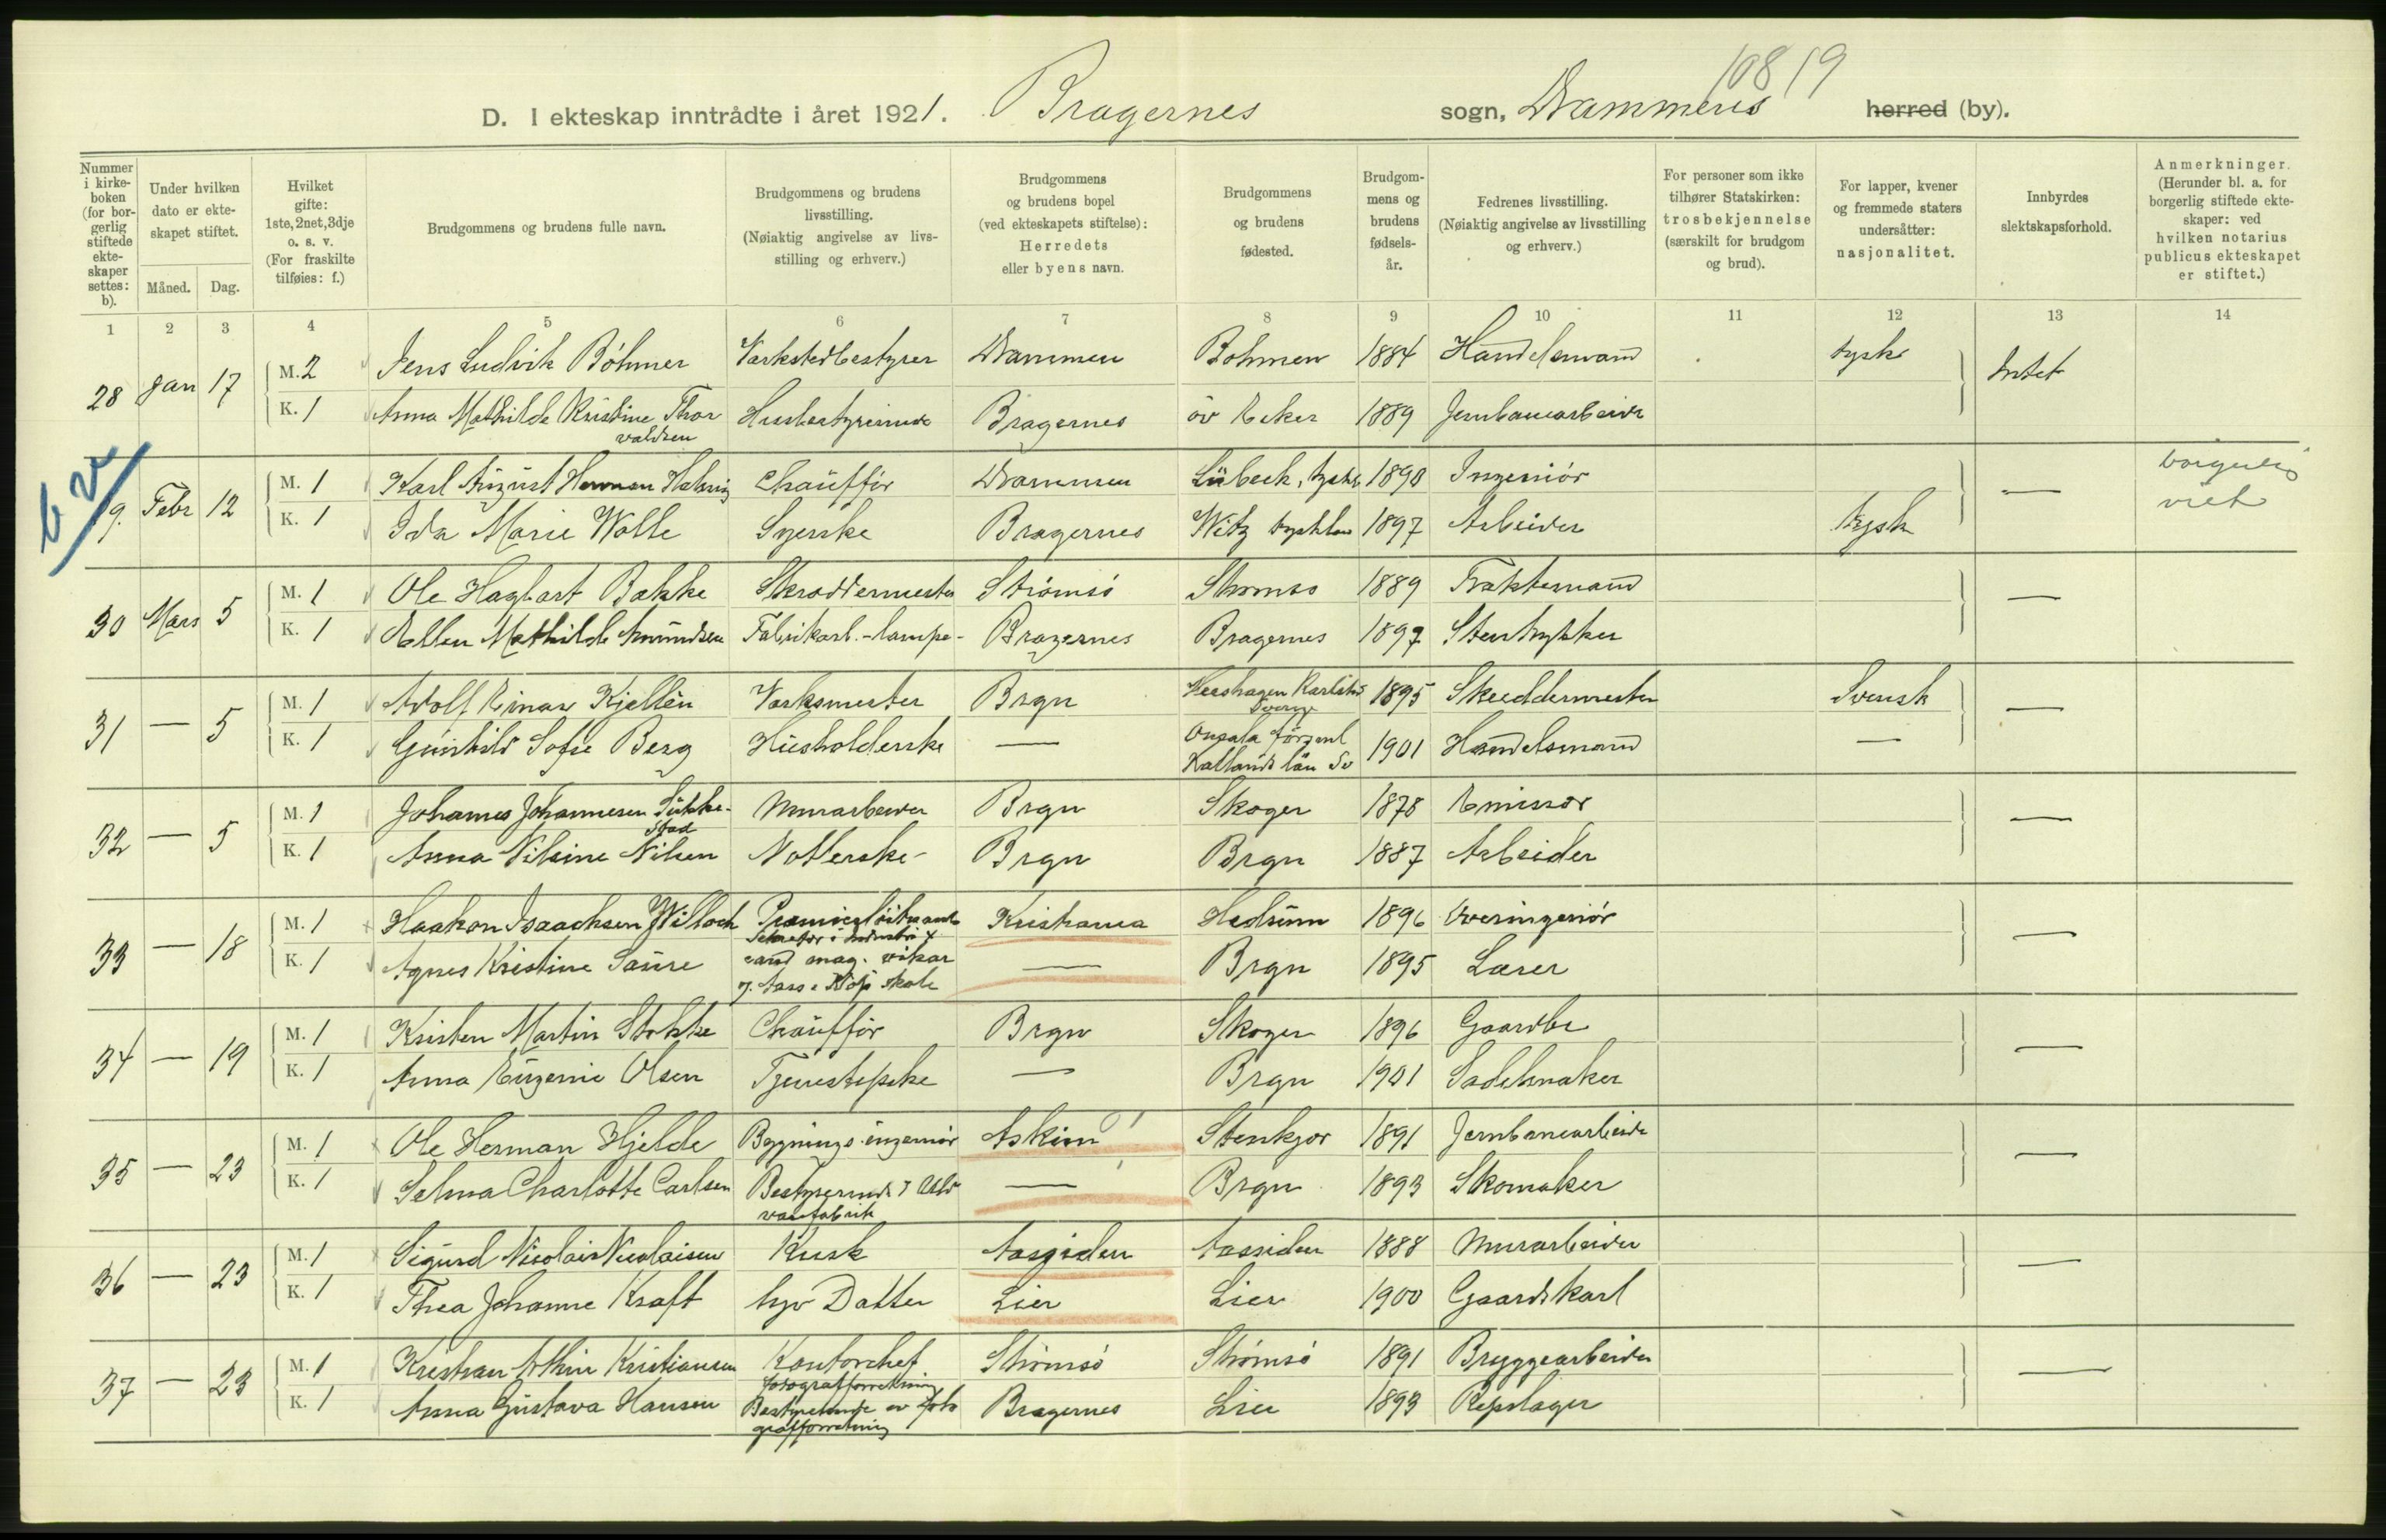 10819
D. I ekteskap inntrådte i året 1921. Bragernes sogn, Drammens herred (by).
Nummer i kirke-boken (for bor-gerlig stiftede ekte-skaper settes: b).
Under hvilken dato er ekte-skapet stiftet.
Måned. Dag.
Hvilket gifte: 1ste, 2net, 3dje o. s. v. (For fraskilte tilføies: f.)
Brudgommens og brudens fulle navn.
Brudgommens og brudens livsstilling. (Nøiaktig angivelse av livs-stilling og erhverv.)
Brudgommens og brudens bopel (ved ekteskapets stiftelse): Herredets eller byens navn.
Brudgommens og brudens fødested.
Brudgom-mens og brudens fødsels-år.
Fedrenes livsstilling. (Nøiaktig angivelse av livsstilling og erhverv.)
For personer som ikke tilhører Statskirken: trosbekjennelse (særskilt for brudgom og brud).
For lapper, kvener og fremmede staters undersåtter: nasjonalitet.
Innbyrdes slektskapsforhold.
Anmerkninger. (Herunder bl. a. for borgerlig stiftede ekte-skaper: ved hvilken notarius publicus ekteskapet er stiftet.)
1 2 3 4 5 6 7 8 9 10 11 12 13 14
28 Jan 17 M. 2 Jens Ludvik Böhmer Verkstedbestyrer Drammen Bohmen 1884 Handelsmand tysk Intet
K. 1 Anna Mathilde Kristine Thorvaldsen Husbestyrerinde Bragernes öv Eker 1889 Jernbanearbeider
9. Febr 12 M. 1 Karl August Herman Chaufför Drammen Lübeck, 1898 Ingeniör — borgerlig viet
K. 1 Ida Marie Wolle Syerske Bragernes 1897 Arbeider tysk
30 Mars 5 M. 1 Ole Hagbart Bakke Skræddermester Strömsö Strömsö 1889 Fraktemand —
K. 1 Ellen Mathilde Amundsen Fabrikarb. -lampe- Bragernes Bragernes 1897 Stentrykker
31 — 5 M. 1 Adolf Einar Kjellén Verksmester Brgn Sverge 1895 Skreddermester Svensk —
K. 1 Gunhild Sofie Berg Husholderske — Onsala Hallands län Sv 1901 Handelsmand —
32 — 5 M. 1 Johannes Johannesen Sukke-stad Murarbeider Brgn Skoger 1878 Emissær —
K. 1 Anna Nilsine Nilsen Brgn Brgn 1887 Arbeider
33 — 18 M. 1 Haakon Isaachsen Willoch Premierlöitnant Sekretær i Kristiania Hedrum 1896 Overingeniör —
K. 1 Agnes Kristine Saure cand mag. vikar skole — Brgn 1895 Lærer
34 — 19 M. 1 Kristen Martin Stokke Chaufför Brgn Skoger 1896 Gaardbr —
K. 1 Anna Eugenie Olsen Tjenestepike — Brgn 1901 Sadelmaker
35 — 23 M. 1 Ole Herman Hjelde Bygnings-ingeniör Askim Stenkjær 1891 Jernbanearbeider —
K. 1 Selma Charlotte Carlsen Bestyrerinde varefabrik — Brgn 1893 Skomaker
36 — 23 M. 1 Sigurd Nicolai Nicolaisen Kusk Aassiden Aassiden 1888 Murarbeider —
K. 1 Thea Johanne Kraft hjv Datter Lier Lier 1900 Gaardskarl
37 — 23 M. 1 Kristian Kristiansen Kontorchef Strömsö Strömsö 1891 Bryggearbeider —
fotografforretning
K. 1 Anna Gustava Hansen Bestyrerinde av fotografforretning Bragernes Lier 1893 Repslager